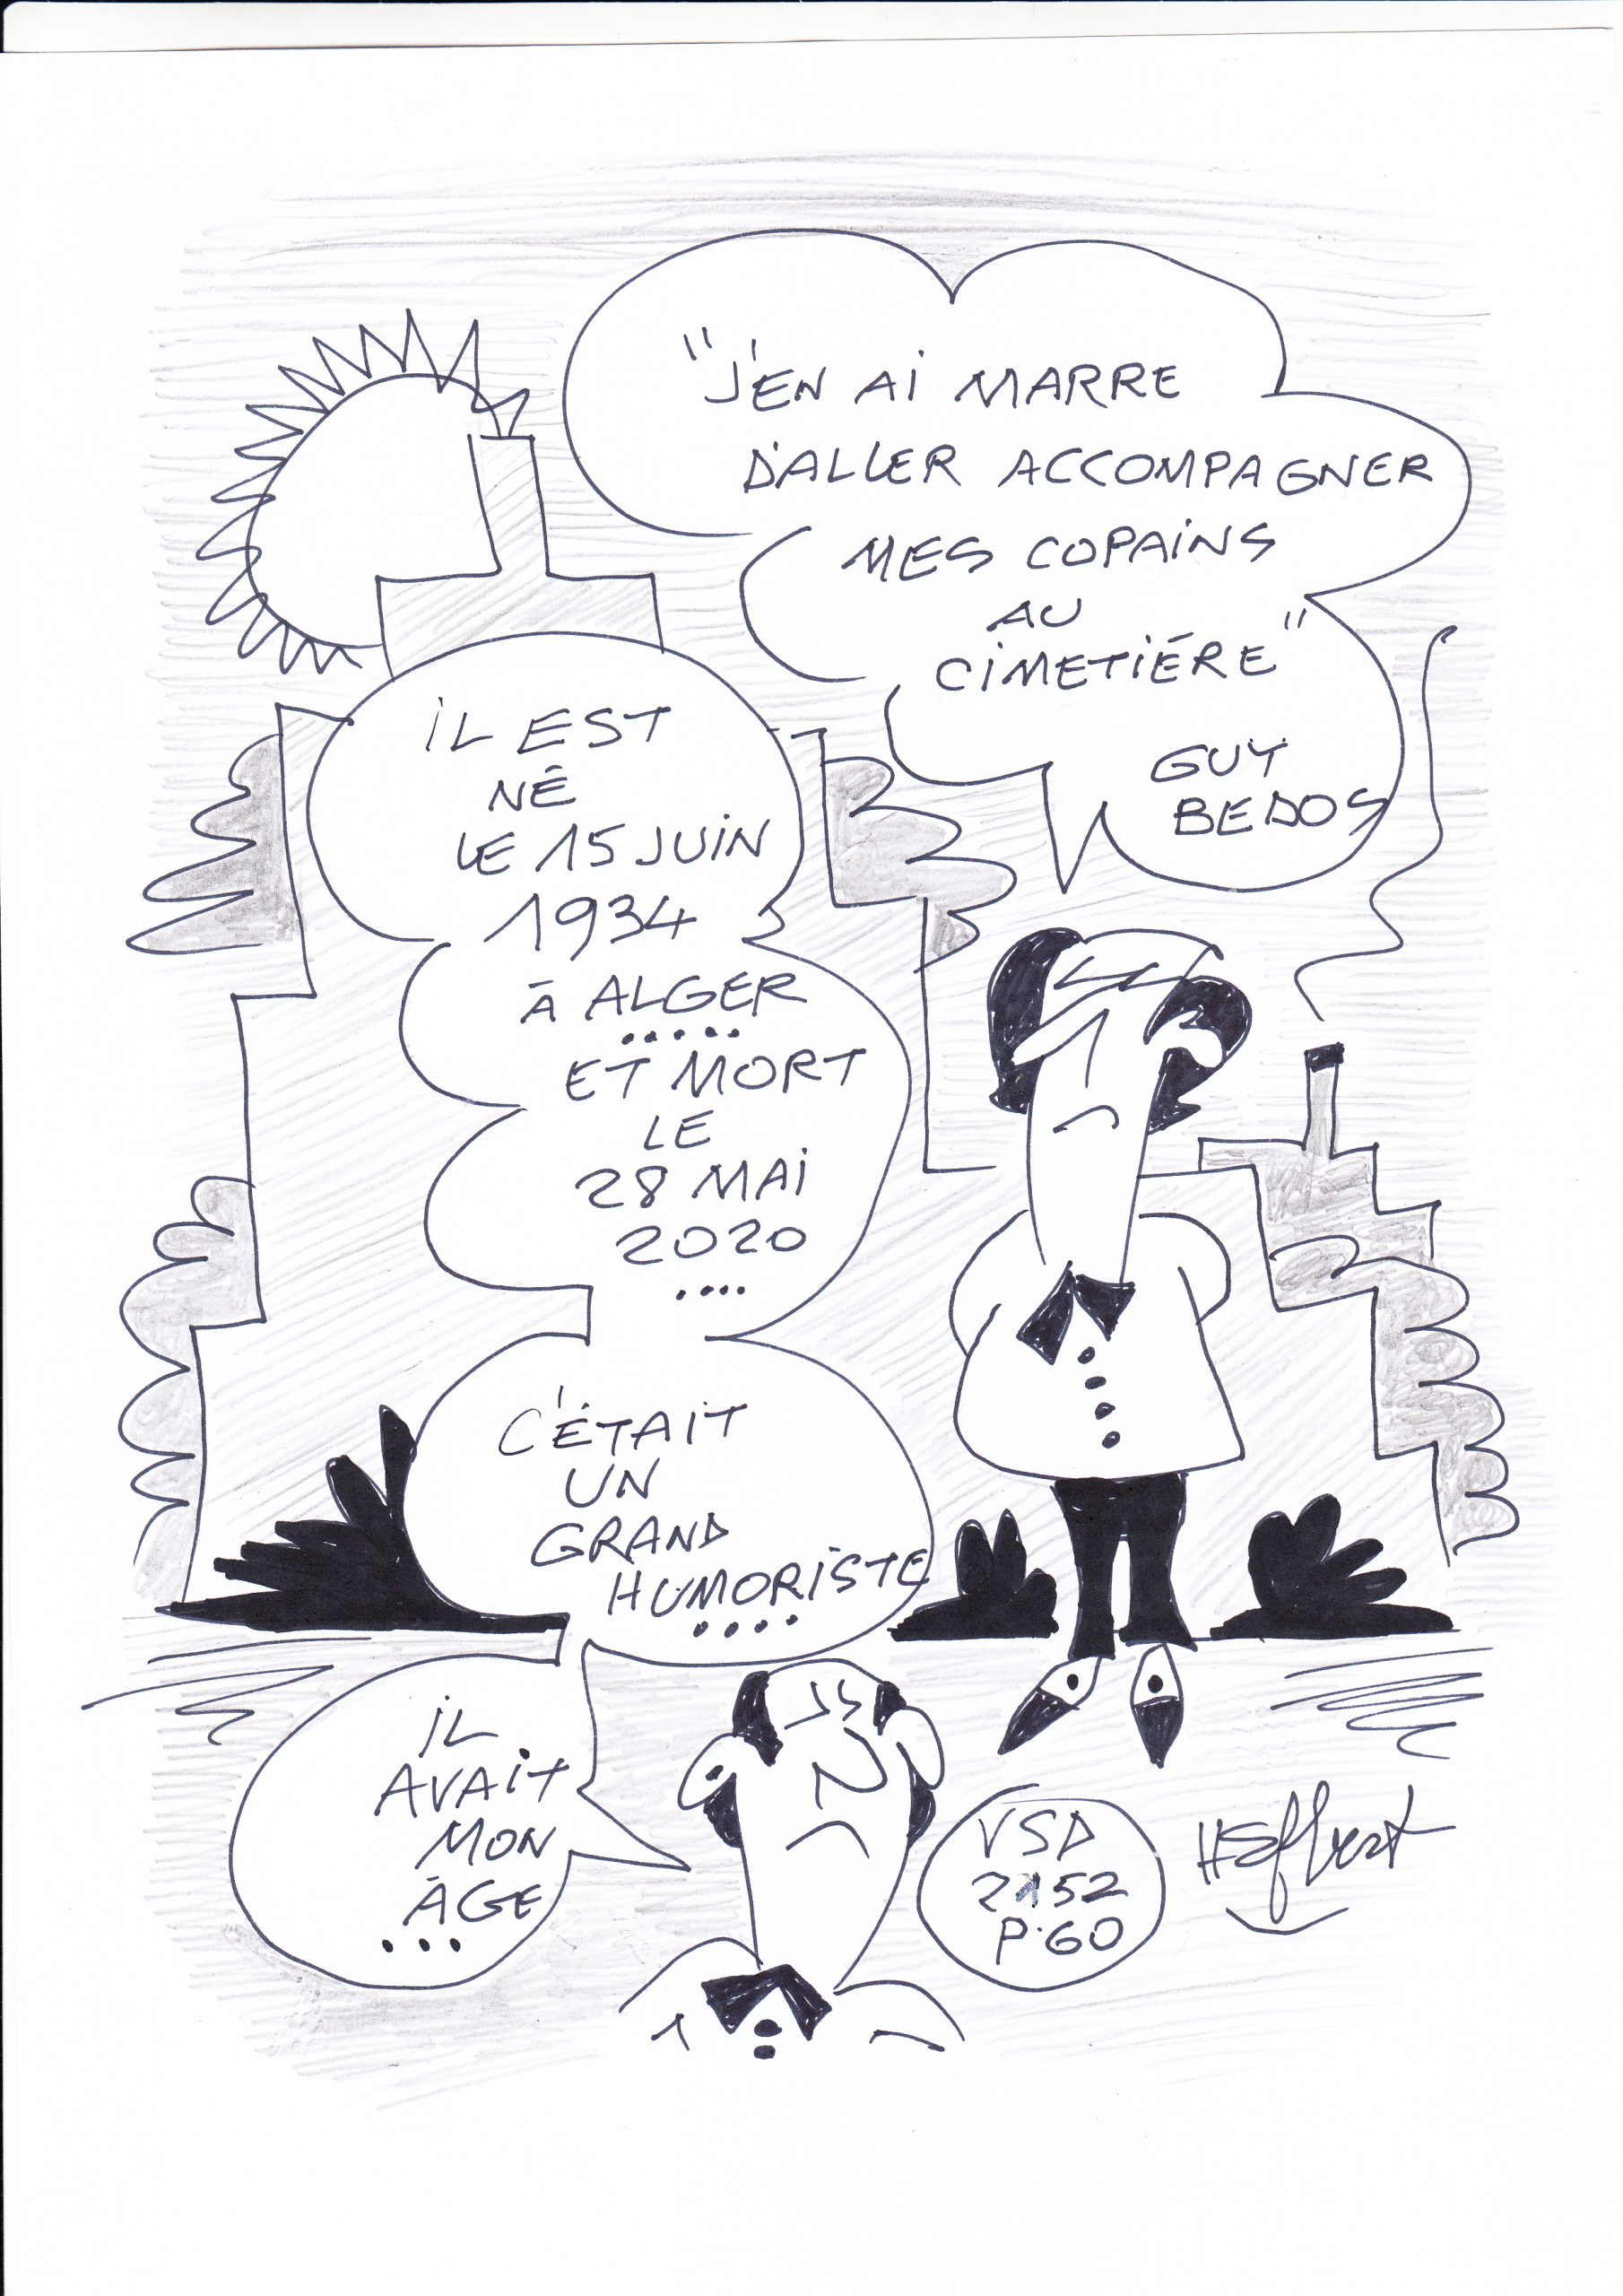 "J'EN AI MARRE
D'ALLER ACCOMPAGNER
MES COPAINS
AU
CIMETIÉRE"
GUY
BEDOS
IL EST
NÉ
LE 15 JUIN
1934
À ALGER
.....
ET MORT
LE
28 MAI
2020
....
C'ÉTAIT
UN
GRAND
HUMORISTE
....
IL
AVAIT
MON
ÂGE
...
VSD
2152
P.60